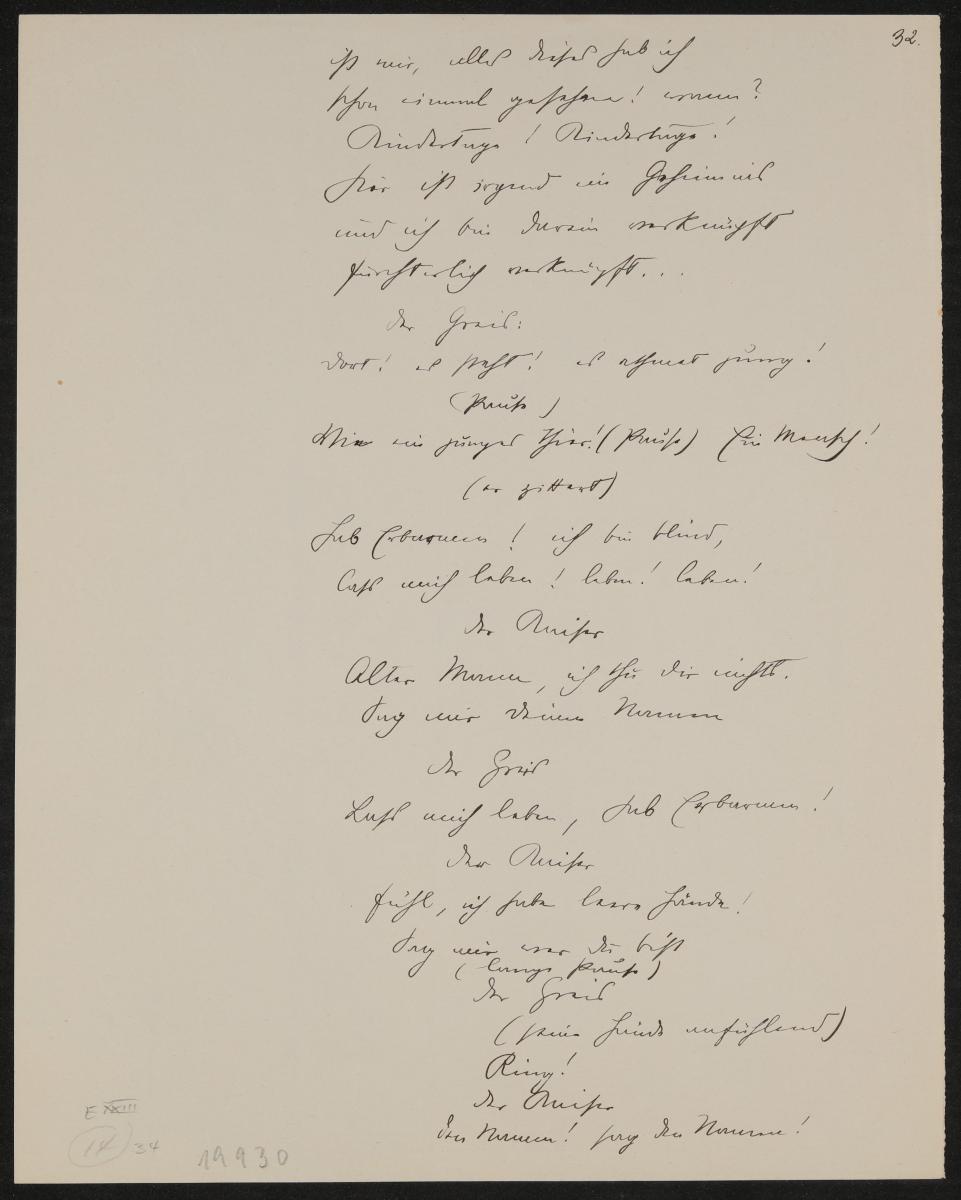 32.
ist mir, alles dieses hab ich
schon einmal gesehen! wann?
Kindertage! Kindertage!
Hier ist irgend ein Geheimnis
und ich bin darein verknüpft
fürchterlich verknüpft...
der Greis:
Dort! es steht! es athmet jung!
(Pause)
Wie ein junges Thier! (Pause) Ein Mensch!
(er zittert)
Hab Erbarmen! ich bin blind,
lass mich leben! leben! leben!
der Kaiser
Alter Mann, ich thu dir nichts.
Sag mir deinen Namen
der Greis
Lass mich leben, hab Erbarmen!
der Kaiser
Fühl, ich habe leere Hände!
Sag mir wer du bist
(lange Pause)
der Greis
(seine Hände anfühlend)
Ring!
der Kaiser
den Namen! sag den Namen!
E XXIII
14 34
19930